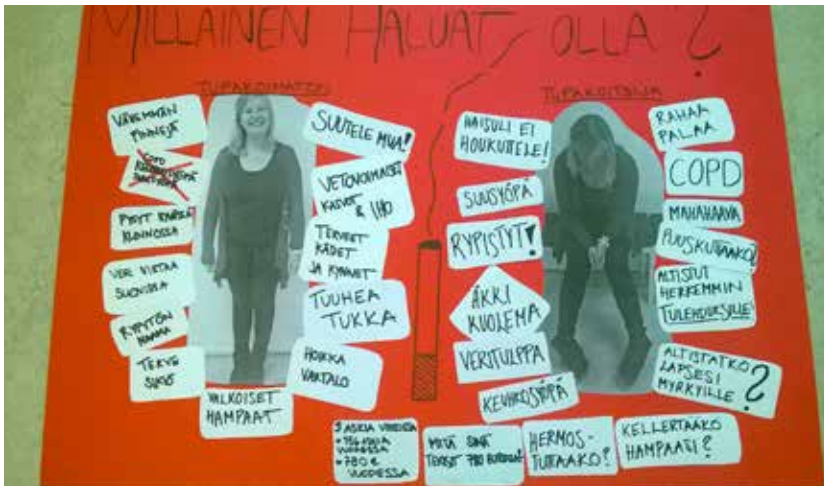 MILLAINEN HALUAT OLLA?
TUPAKOIMATON
TUPAKOITSIJA
VÄHEMMÄN
FINNEJÄ
COPD
PYSYT
KUNNOSSA
VERI VIRTAA
SUONISSA
RYPYTÖN
NAAMA
TERVE
VALKOISET
HAMPAAT
SUUTELE MUA!
VETOVOIMAISET
KASVOT & IHO
TERVEET
KÄDET
JA KYNNET
TUUHEA
TUKKA
HOIKKA
VARTALO
HAISULI EI
HOUKUTTELE!
SUUSYÖPÄ
RYPISTYT!
ÄKKI
KUOLEMA
VERITULPPA
KEUHKOSYÖPÄ
RAHAA
PALAA
COPD
MAHAHAAVA
PUUSKUTTAAKO?
ALTISTUT
HERKEMMIN
TULEHDUKSILLE!
ALTISTATKO
LAPSESI
MYRKYILLE?
3 ASKIA VIIKOSSA
• 156 ASKIA
VUODESSA
• 780 €
VUODESSA
MITÄ SINÄ
TEKISIT 780 EUROLLA?
HERMOS-
TUTTAAKO?
KELLERTÄÄKÖ
HAMPAATI?